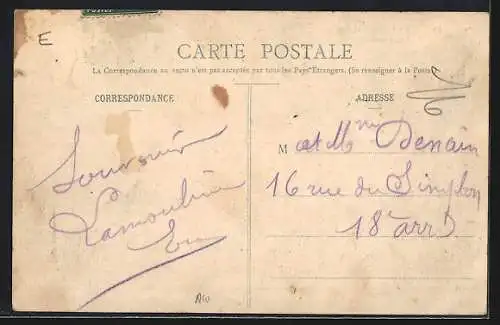 E
CARTE POSTALE
La Correspondance au verso n'est pas acceptée par tous les Pays Etrangers. (Se renseigner à la Poste)
CORRESPONDANCE
ADRESSE
M et Mme Denain
16 rue du Simplon
18e arrt
Souvenir